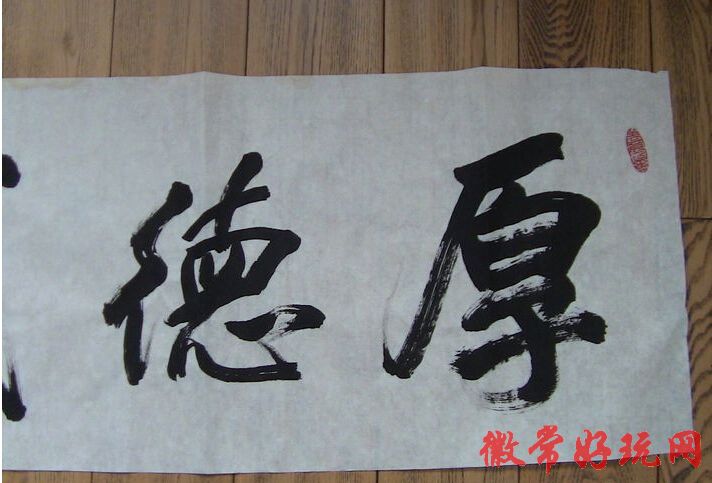 厚德
徽常好玩网